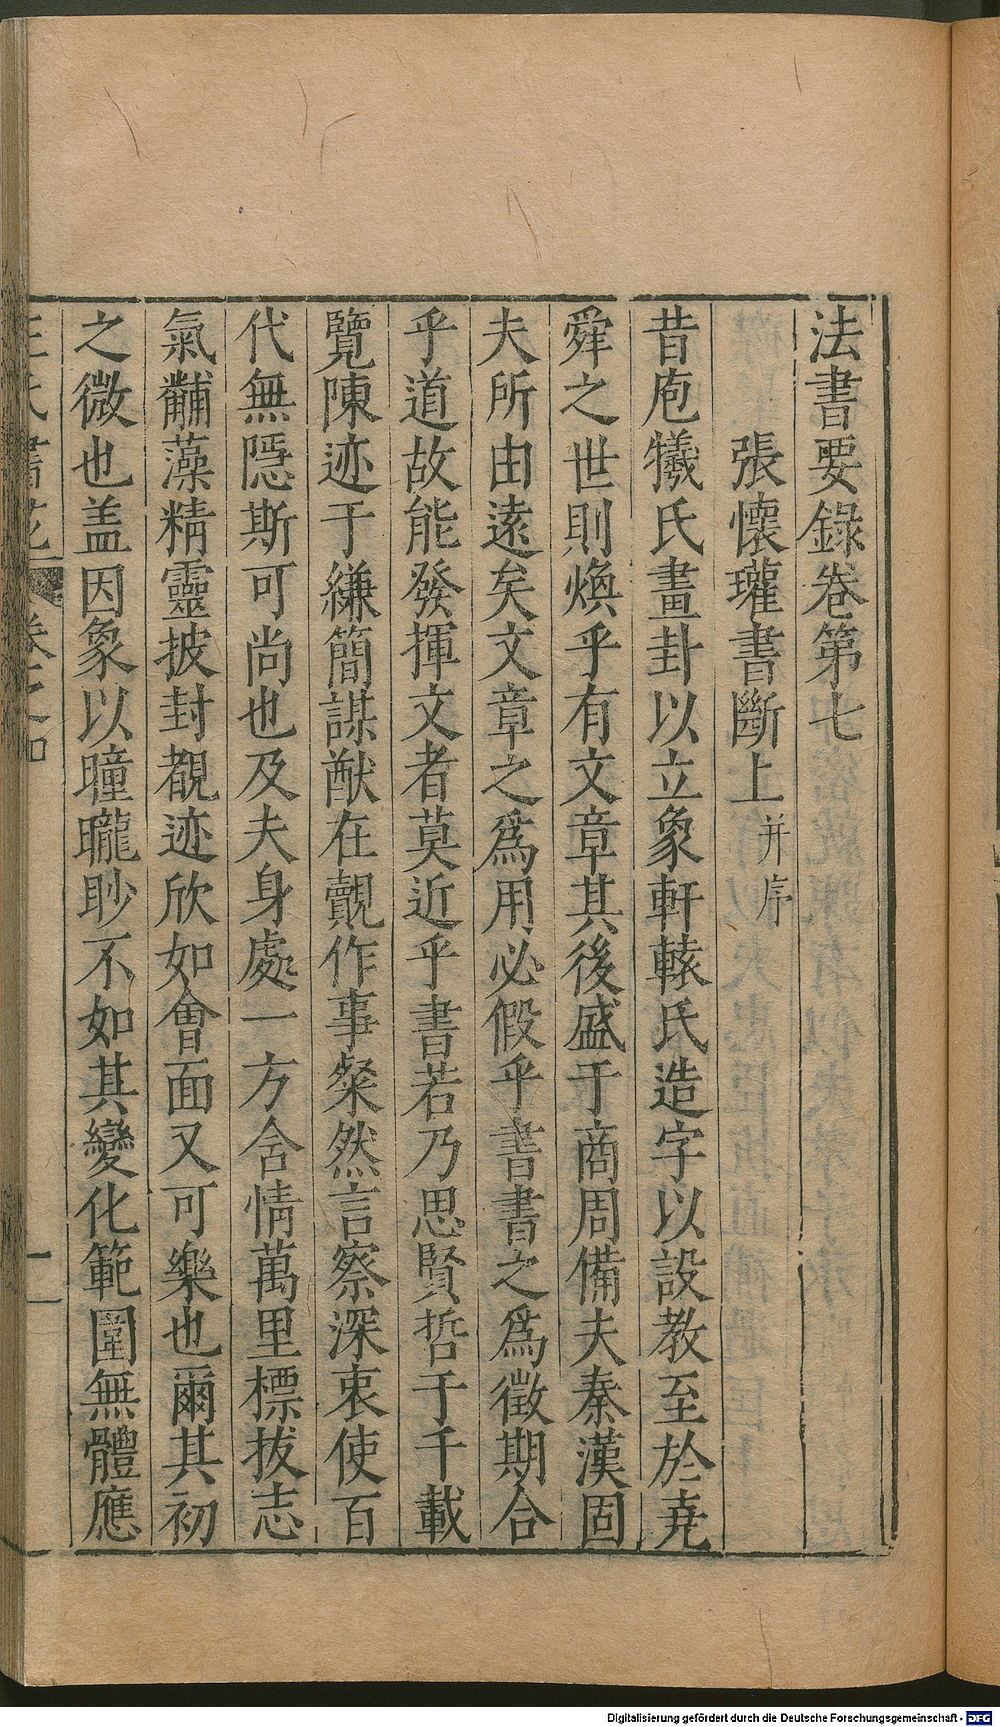 法書要錄卷第七
張懷瓘書斷上并序
昔庖犧氏畫卦以立象軒轅氏造字以設教至於堯
舜之世則煥乎有文章其後盛于商周備夫秦漢固
夫所由遠矣文章之爲用必假乎書書之爲徵期合
乎道故能發揮文者莫近乎書若乃思賢哲于千載
覽陳迹于縑簡謀猷在覿作事粲然言察深衷使百
代無隱斯可尚也及夫身處一方含情萬里標拔志
氣黼藻精靈披封覩迹欣如會面又可樂也爾其初
之微也盖因象以瞳矓眇不如其變化範圍無體應
Digitalisierung gefördert durch die Deutsche Forschungsgemeinschaft - DFG